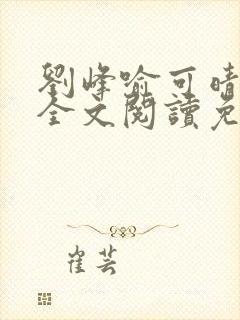 劉峰喻可晴
全文閱讀免
崔芸